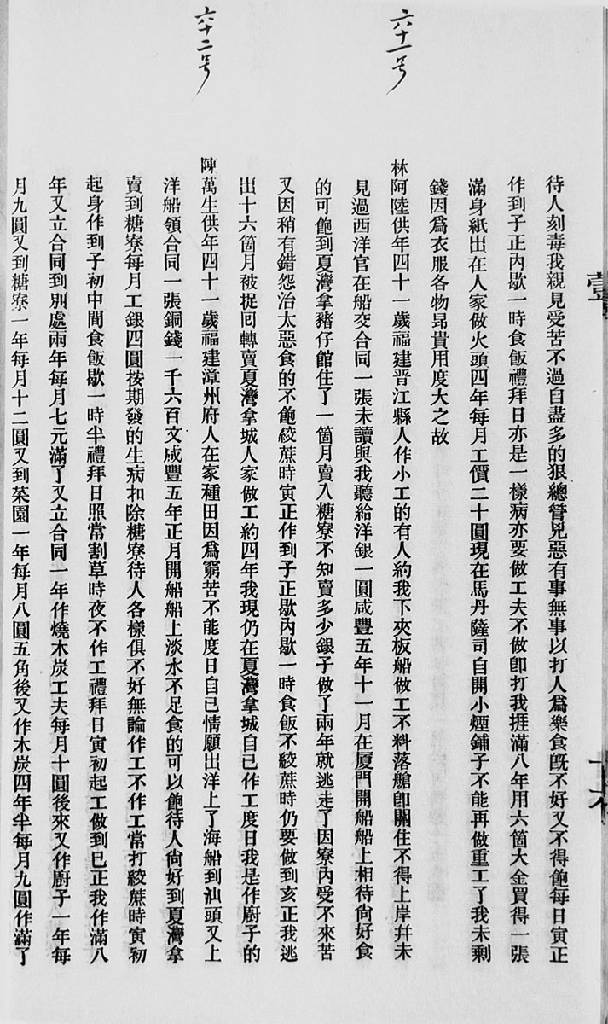 待人刻毒我親見受苦不過自盡多的狠總管兇惡有事無事以打人為樂食既不好又不得飽每日寅正
作到子正內歇一時食飯禮拜日亦是一樣病亦要做工夫不做卽打我捱滿八年用六箇大金買得一張
滿身紙出在人家做火頭四年每月工價二十圓現在馬丹薩司自開小煙鋪子不能再做重工了我未剩
錢因為衣服各物昂貴用度大之故
六十一号
林阿陸供年四十一歲福建晋江縣人作小工的有人約我下夾板船做工不料落艙卽關住不得上岸幷未
見過西洋官在船交合同一張未讀與我聽給洋銀一圓咸豐五年十一月在厦門開船船上相待尙好食
的可飽到夏灣拿豬仔館住了一箇月賣入糖寮不知賣多少銀子做了兩年就逃走了因寮內受不來苦
又因稍有錯怨治太惡食的不飽絞蔗時寅正作到子正歇內歇一時食飯不絞蔗時仍要做到亥正我逃
出十六箇月被捉囘轉賣夏灣拿城人家做工約四年我現仍在夏灣拿城自己作工度日我是作廚子的
六十二号
陳萬生供年四十一歲福建漳州府人在家種田因為窮苦不能度日自己情願出洋上了海船到汕頭又上
洋船領合同一張銅錢一千六百文咸豐五年正月開船船上淡水不足食的可以飽待人尙好到夏灣拿
賣到糖寮每月工銀四圓按期發的生病扣除糖寮待人各樣俱不好無論作工不作工當打絞蔗時寅初
起身作到子初中間食飯歇一時半禮拜日照常割草時夜不作工禮拜日寅初起工做到巳正我作滿八
年又立合同到別處兩年每月七元滿了又立合同一年作燒木炭工夫每月十圓後來又作廚子一年每
月九圓又到糖寮一年每月十二圓又到菜園一年每月八圓五角後又作木炭四年半每月九圓作滿了